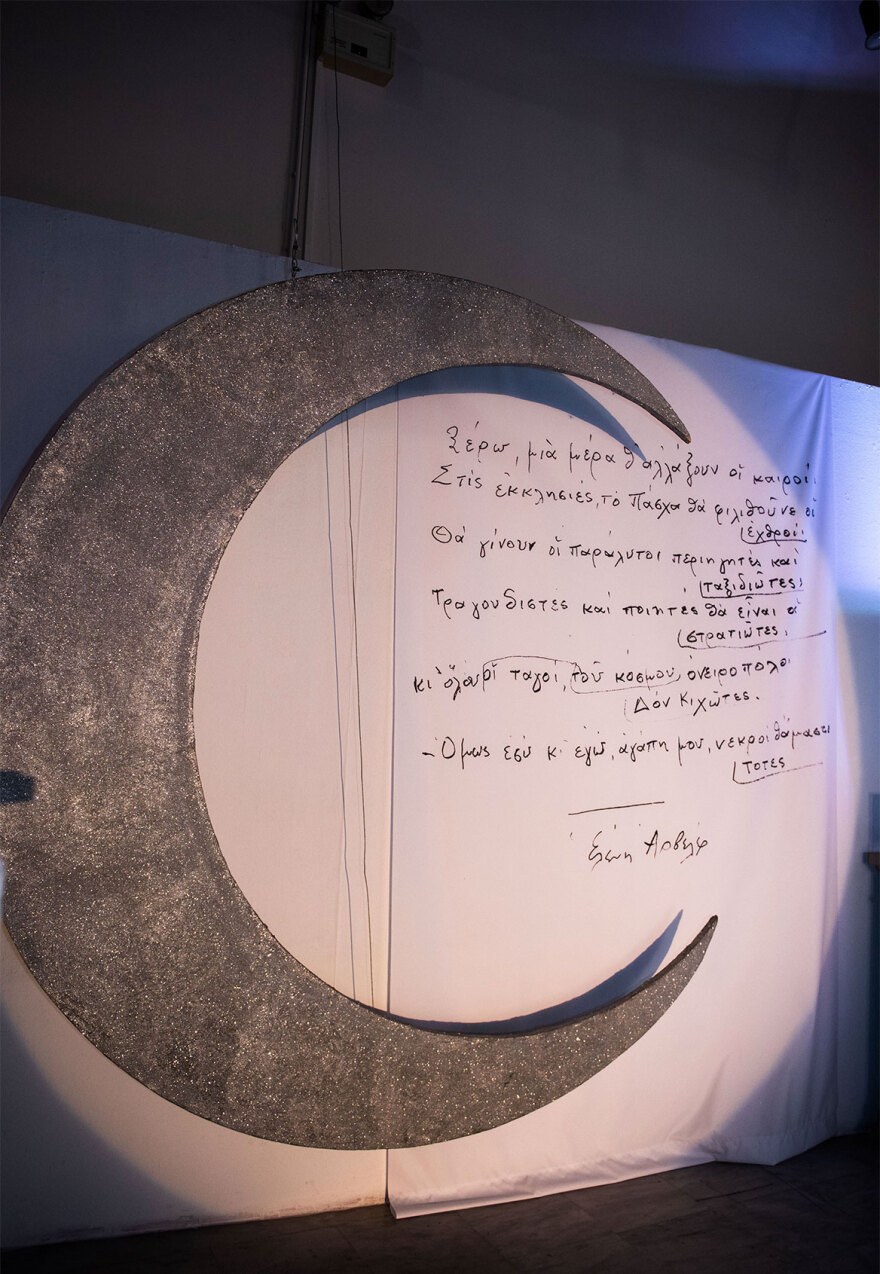 Ξέρω, μιὰ μέρα θ' ἀλλάξουν οἱ καιροί·
Στὶς ἐκκλησιές, τὸ Πάσχα θὰ φιληθοῦνε οἱ
ἐχθροί·
Θὰ γίνουν οἱ παράλυτοι περιηγητὲς καὶ
ταξιδιῶτες·
Τραγουδιστὲς καὶ ποιητὲς θὰ εἶναι οἱ
στρατιῶτες.
κι οἱ ταγοί, τοῦ κόσμου, ὀνειροπόλοι
Δὸν Κιχῶτες.
– Ὅμως ἐσὺ κι ἐγώ, ἀγάπη μου, νεκροὶ θἄμαστε
τότες